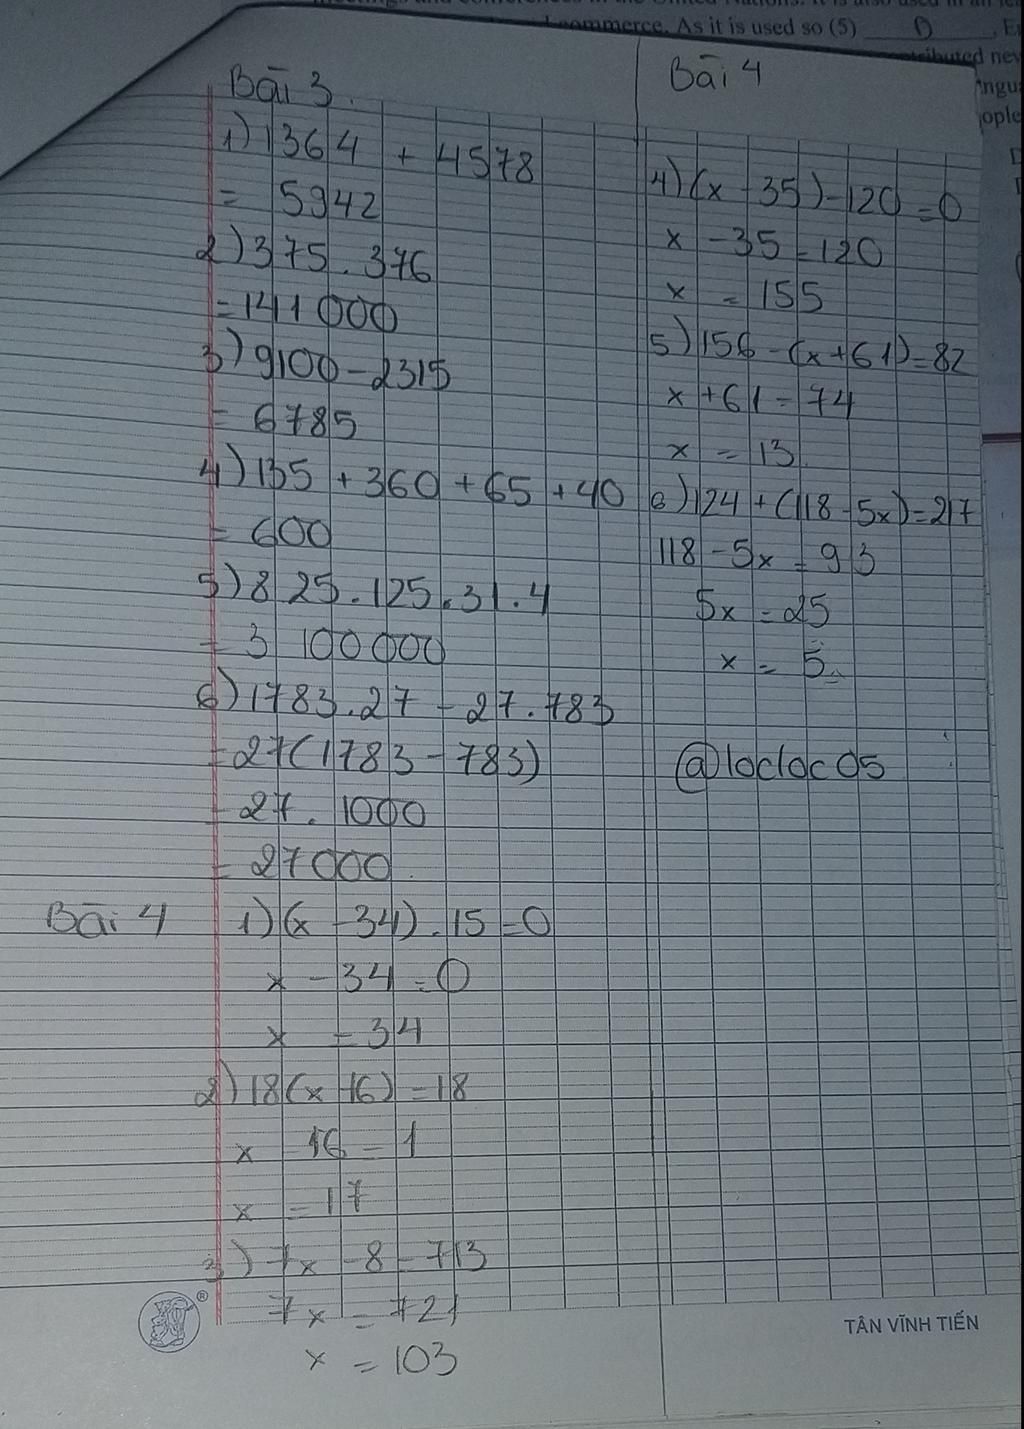 commerce. As it is used so (5) D , E
Bài 3.
1) 1364 + 4578
= 5942
2) 375 . 376
= 141 000
3) 9100 - 2315
= 6785
4) 135 + 360 + 65 + 40
= 600
5) 8 25 . 125 . 31 . 4
= 3 100 000
6) 1783 . 27 - 27 . 783
= 27 (1783 - 783)
= 27 . 1000
= 27000.
Bài 4
1) (x - 34) . 15 = 0
x - 34 = 0
x = 34
2) 18 (x - 16) = 18
x - 16 = 1
x = 17
3) 7x - 8 = 713
7x = 721
x = 103
Bài 4
4) (x - 35) - 120 = 0
x - 35 = 120
x = 155
5) 156 - (x + 61) = 82
x + 61 = 74
x = 13.
6) 124 + (118 - 5x) = 217
118 - 5x = 93
5x = 25
x = 5.
@locloc05
TÂN VĨNH TIẾN